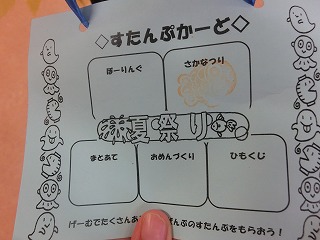 ◇すたんぷかーど◇
ぼーりんぐ
さかなつり
夏祭り
まとあて
おめんづくり
ひもくじ
げーむでたくさんあ
ぷのすたんぷをもらおう！